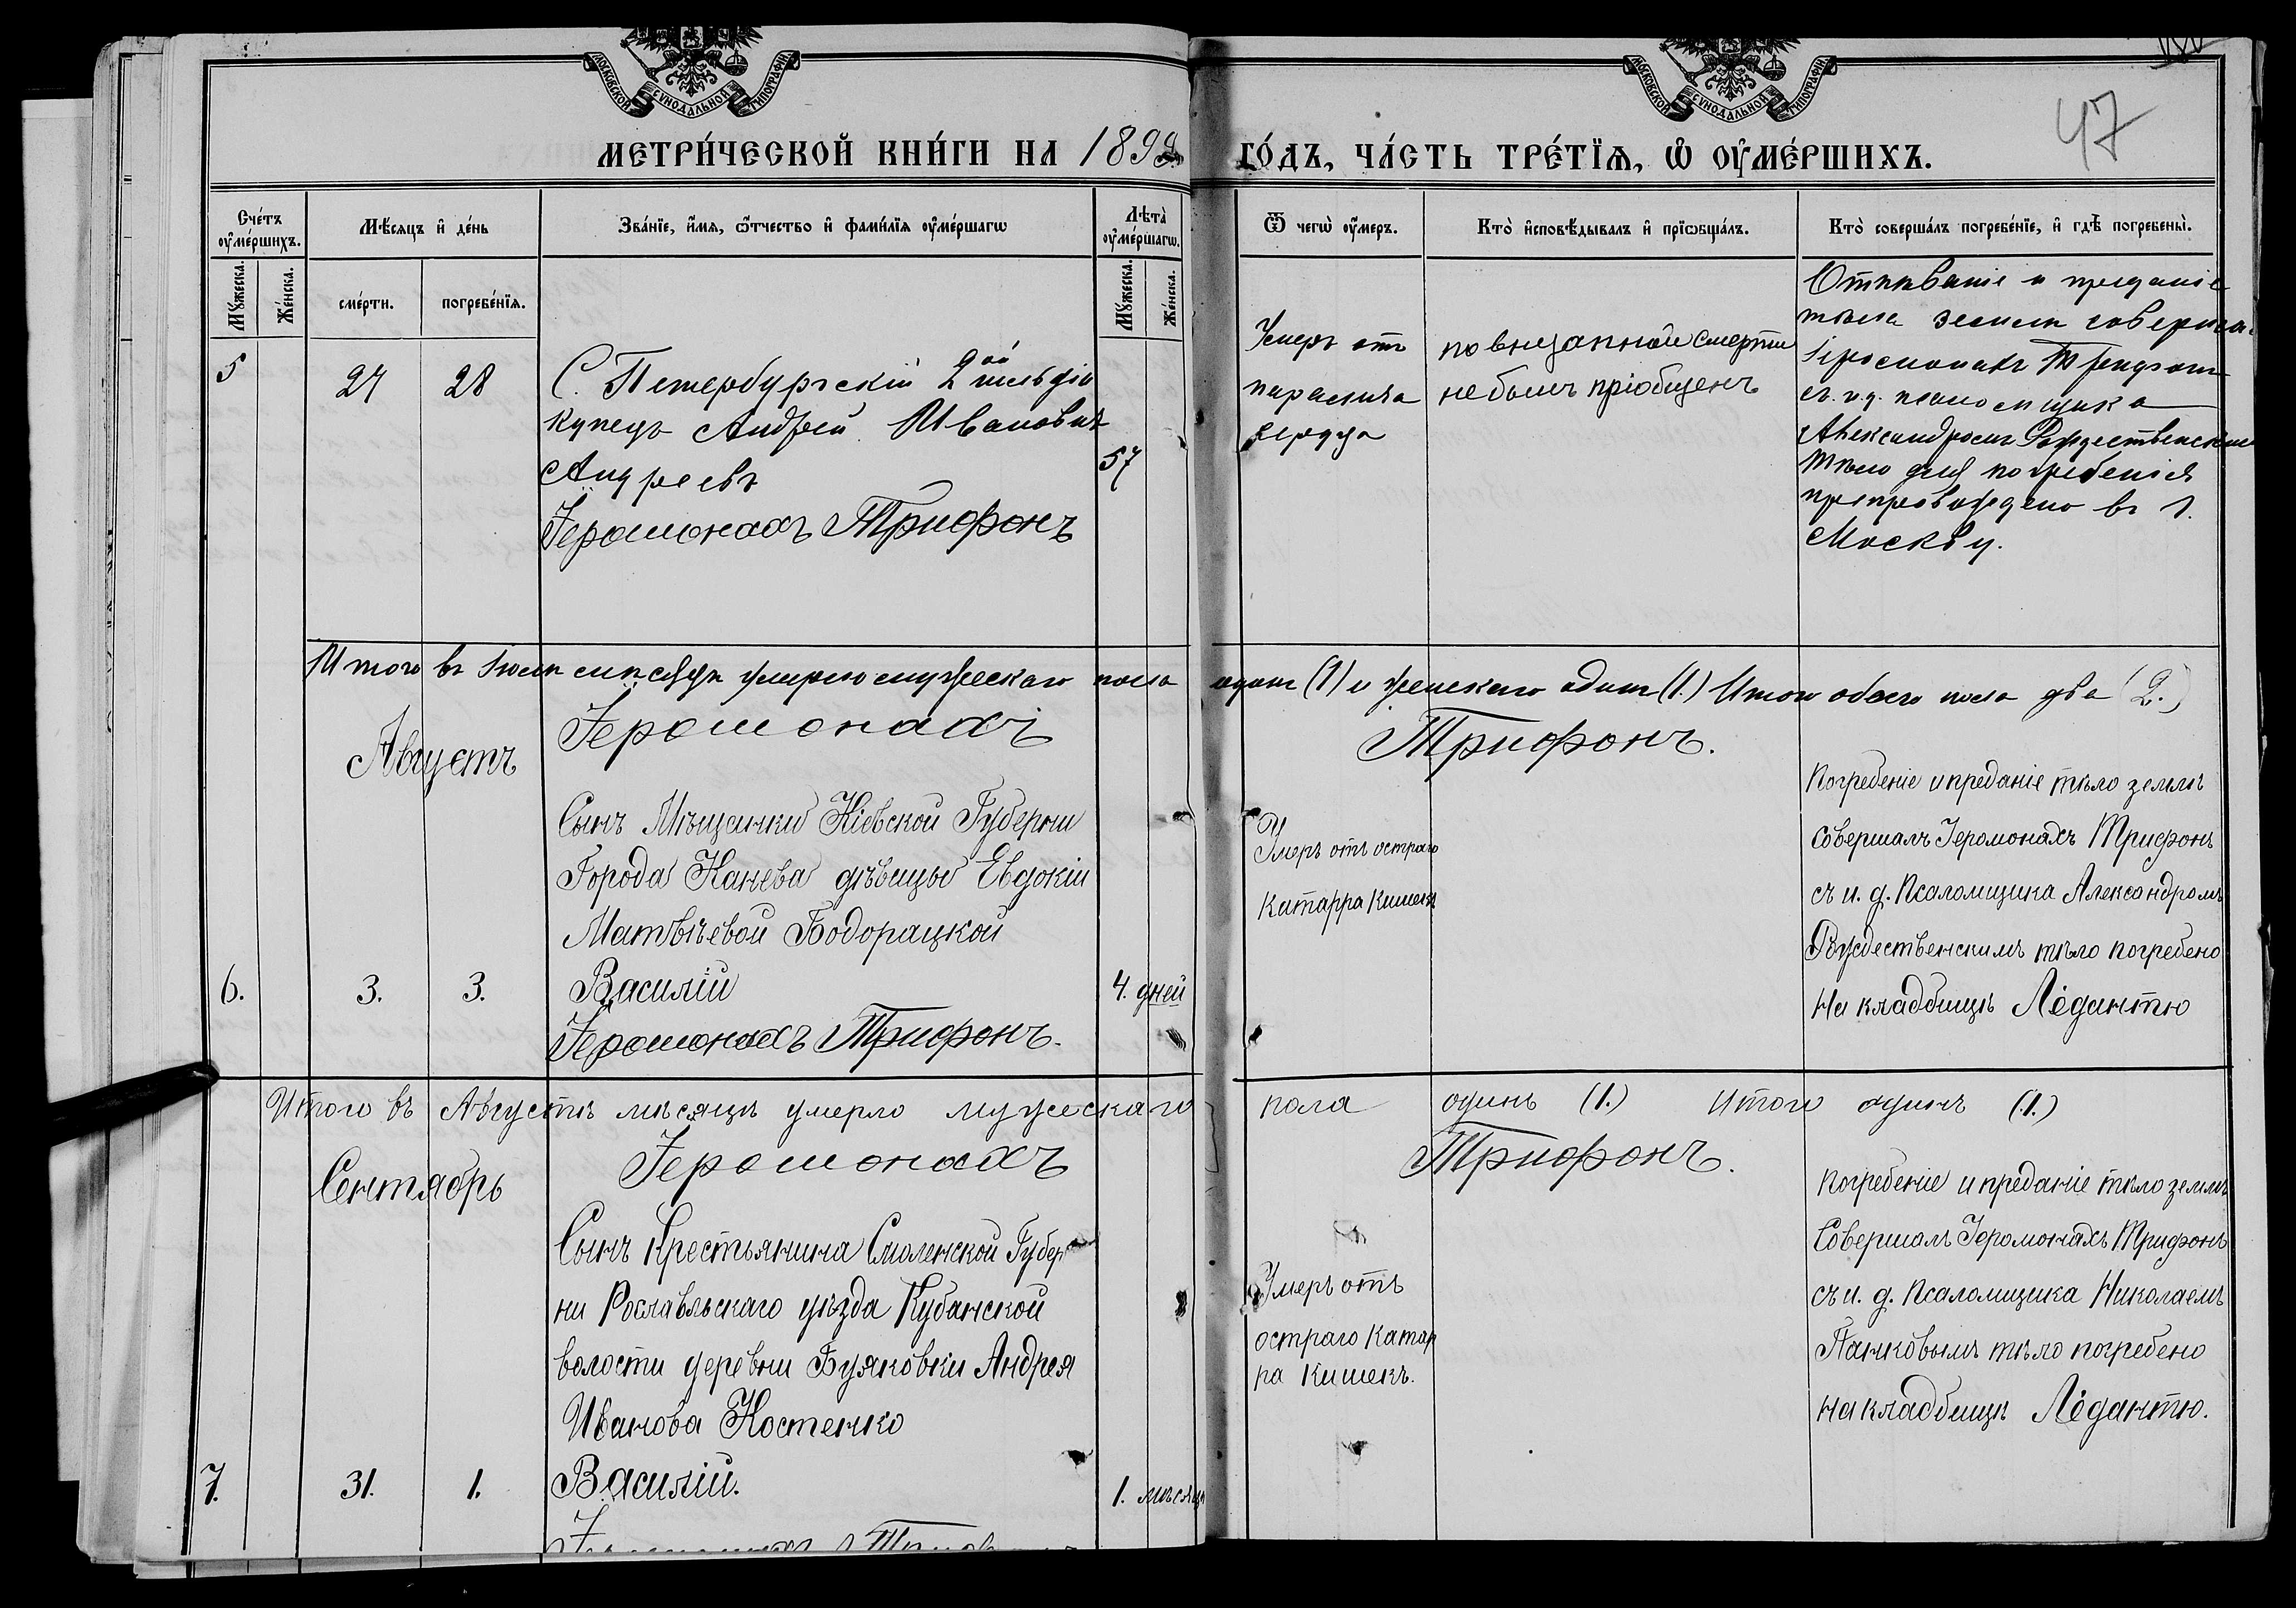 МОСКОВСКОЙ СѴНОДАЛЬНОЙ ТИПОГРАФІИ
МОСКОВСКОЙ СѴНОДАЛЬНОЙ ТИПОГРАФІИ
47
МЕТРИ́ЧЕСКОЙ КНИ́ГИ НА 1899 ГО́ДЪ, ЧА́СТЬ ТРЕ́ТЇѦ, Ѡ҆ ОУ҆МЕ́РШИХЪ.
Сче́тъ оу҆ме́ршихъ.
Мѣ́сѧцъ и҆ де́нь
Зва́нїе, и҆́мѧ, ѻ҆́тчество и҆ фами́лїѧ оу҆ме́ршагѡ
Лѣ̑та оу҆ме́ршагѡ.
Ѿ чегѡ̀ оу҆́меръ.
Кто̀ и҆сповѣ́дывалъ и҆ прїѡбща́лъ.
Кто̀ соверша́лъ погребе́нїе, и҆ гдѣ̀ погребены̀.
Мꙋ́жеска.
Же́нска.
сме́рти.
погребе́нїѧ.
Мꙋ́жеска.
Же́нска.
5
27
28
С. Петербургскій 2ой гильдіи
купецъ Андрей Ивановичъ
Андреевъ
57
Іеромонахъ Трифонъ
Умеръ отъ
паралича
сердца
по внезапной смерти
не былъ пріобщенъ
Отпѣваніе и преданіе
тѣла землѣ соверша
Іеромонахъ Трифонъ
съ и. д. псаломщика
Александромъ Рождественскимъ
Тѣло для погребенія
препровождено въ г.
Москву.
Итого въ Іюлѣ мѣсяцѣ умерло мужескаго пола одинъ (1) и женскаго одинъ (1.) Итого обоего пола два (2.)
Іеромонахъ Трифонъ.
Августъ
Сынъ Мѣщанки Кіевской Губерніи
Города Канева дѣвицы Евдокіи
Матвѣевой Бодорацкой
6.
3.
3.
Василій
4. дней
Іеромонахъ Трифонъ.
Умеръ отъ остраго
катарра кишекъ
Погребеніе и преданіе тѣло землѣ
совершалъ Іеромонахъ Трифонъ
съ и. д. Псаломщика Александромъ
Рождественскимъ тѣло погребено
на кладбищѣ Лёдантю
Итого въ Августѣ мѣсяцѣ умерло мужескаго пола одинъ (1.) Итого одинъ (1.)
Іеромонахъ Трифонъ.
Сентябрь
Сынъ Крестьянина Смоленской Губер
ни Рославльскаго уѣзда Кубанской
волости деревни Буяновки Андрея
Иванова Костенко
7.
31.
1.
Василій.
1. мѣсяцъ
Іеромонахъ Трифонъ
Умеръ отъ
остраго катар
ра кишекъ.
Погребеніе и преданіе тѣло землѣ
Совершалъ Іеромонахъ Трифонъ
съ и. д. Псаломщика Николаемъ
Панковымъ тѣло погребено
на кладбищѣ Лёдантю.